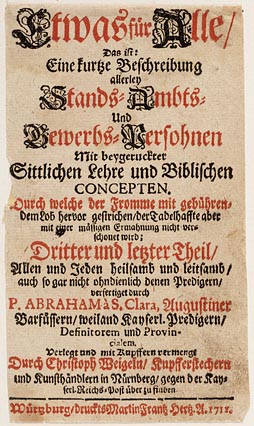 Etwas für Alle/
Das ist:
Eine kurtze Beschreibung
allerley
Stands-Ambts-
Und
Gewerbs-Persohnen
Mit beygeruckter
Sittlichen Lehre und Biblischen
CONCEPTEN.
Durch welche der Fromme mit gebühren-
dem Lob hervor gestrichen/der Tadelhaffte aber
mit einer mässigen Ermahnung nicht ver-
schonet wird;
Dritter und letzter Theil/
Allen und Jeden heilsamb und leitsamb/
auch so gar nicht ohndienlich denen Predigern/
verfertiget durch
P. ABRAHAM à S. Clara, Augustiner
Barfüssern/weiland Kayserl. Predigern/
Definitorem und Provin-
cialem.
Verlegt und mit Kupffern vermengt
Durch Christoph Weigeln/Kupfferstechern
und Kunsthändlern in Nürnberg/gegen der Kay-
serl-Reichs-Post über zu finden.
Würtzburg/druckts Martin Frantz Hertz. A. 1711.